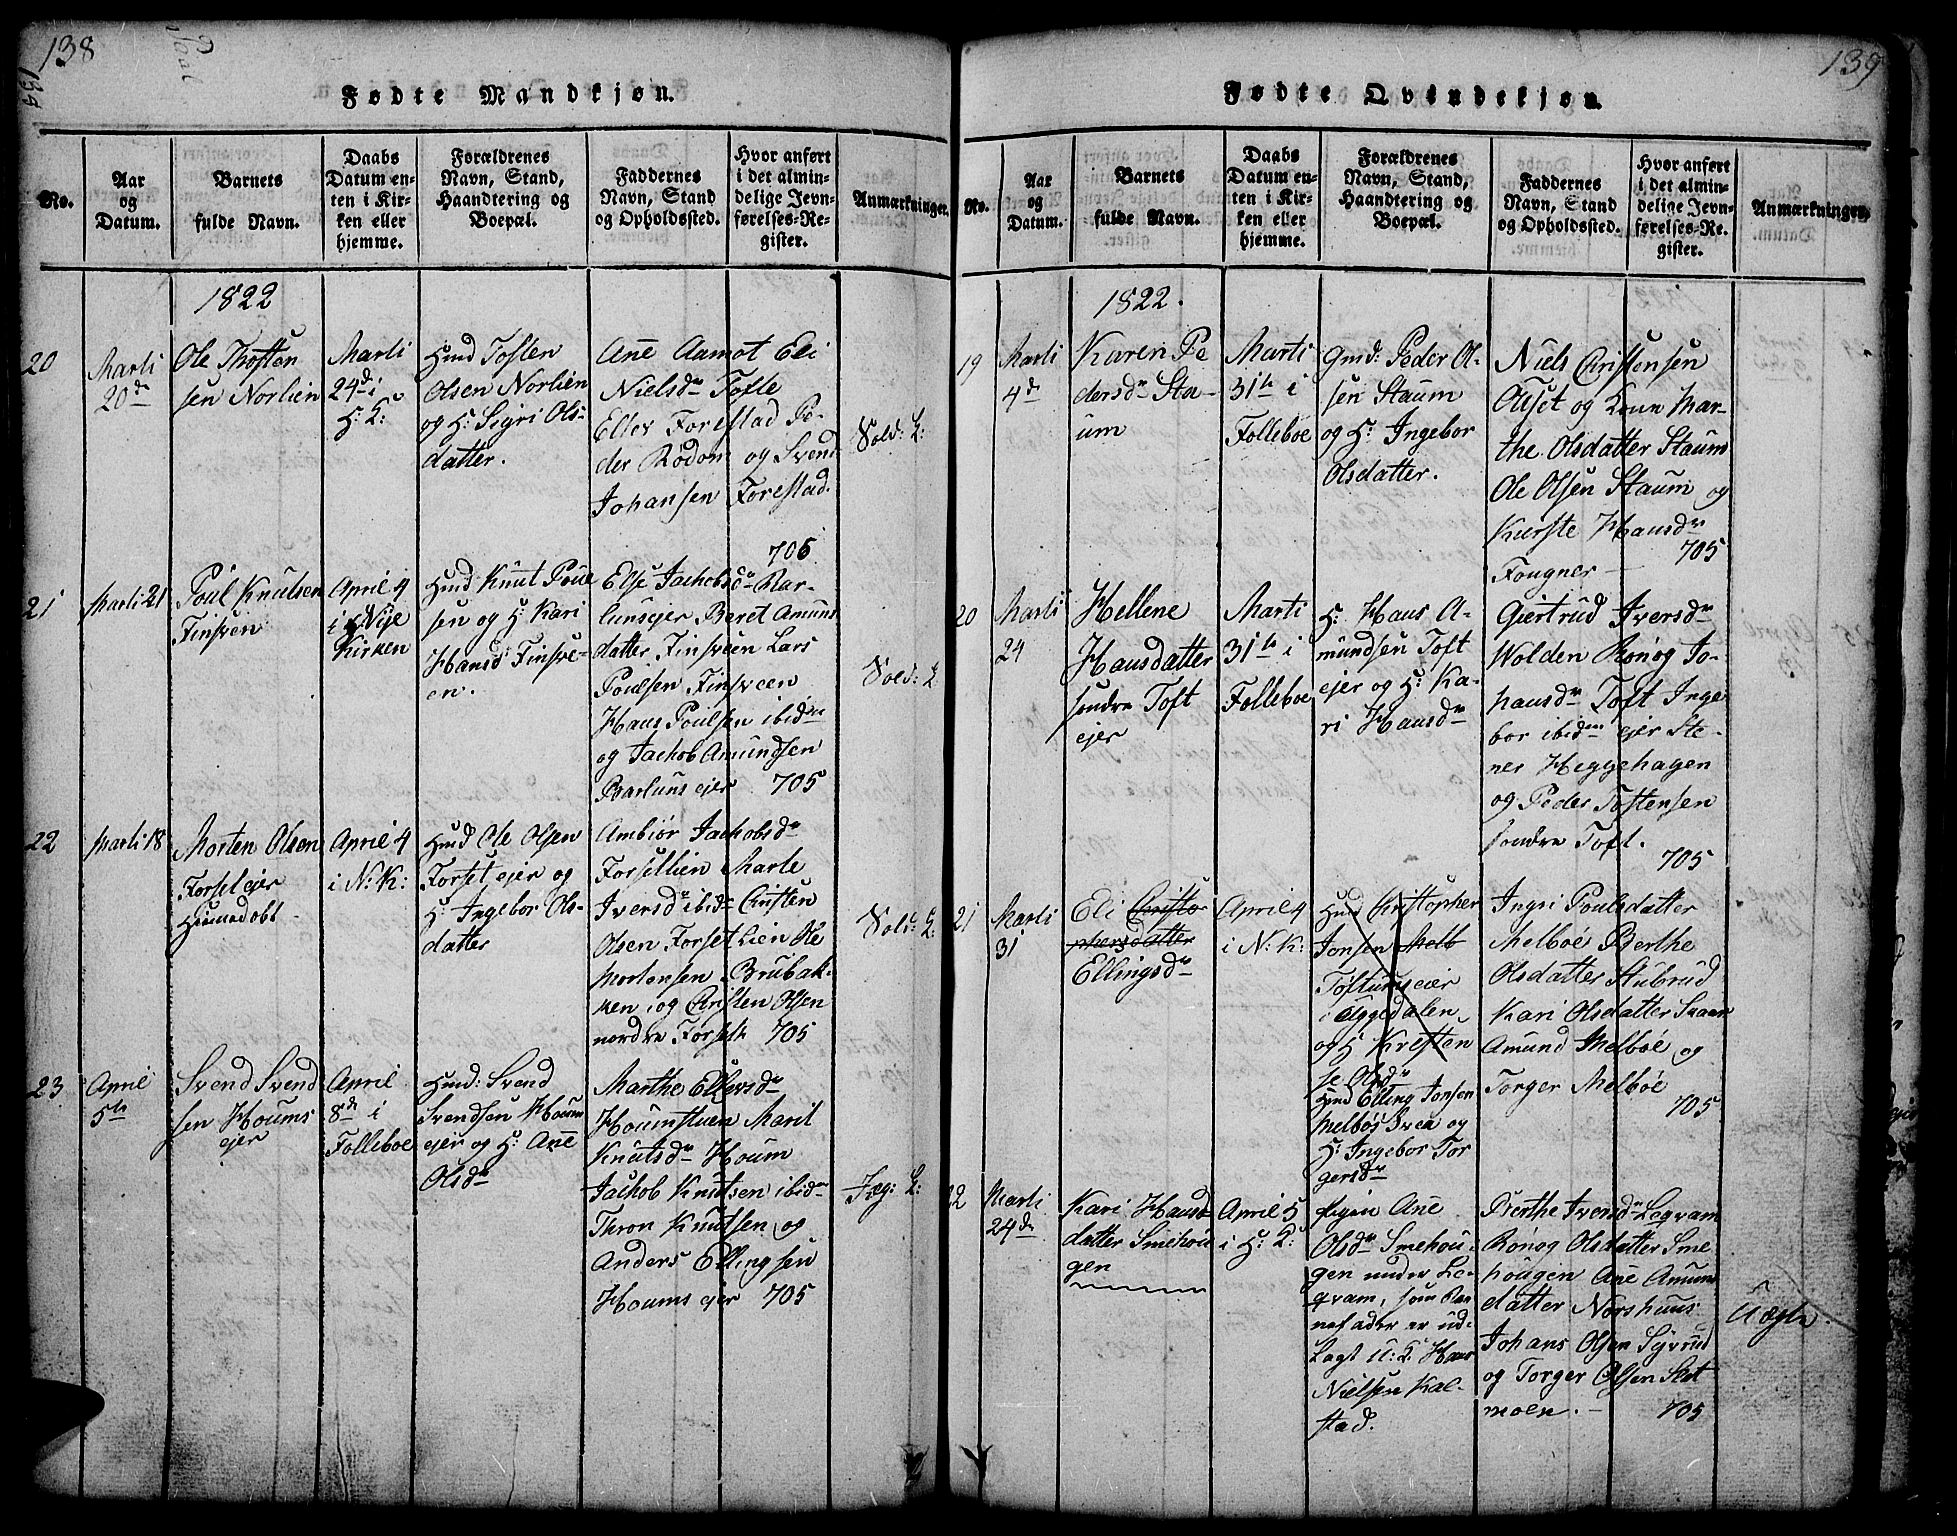 138
139
Paal
Fødte Mandkjøn.
No.
Aar
og
Datum.
Barnets
fulde Navn.
Daabs
Datum en-
ten i Kir-
ken eller
hjemme.
Forældrenes
Navn, Stand,
Haandtering og
Boepæl.
Faddernes
Navn, Stand
og Opholdssted.
Hvor anført
i det almin-
delige Jevn-
førelses-Re-
gister.
Anmærkninger.
1822
20
Marti
20de
Ole Thosten
sen Norlien
Marti
24d i
H: K:
Hmd Tosten
Olsen Norlien
og H: Sigri Ols-
datter.
Ane Aamot Eli
Nielsdr Tofte
Ellev Forestad Pe-
der Rodom og Svend
Johansen Forestad.
705
Sold: L:
21
Marti 21
Poul Knutsen
Finsven
April 4
i Nye
Kirken
Hmd Knut Poul
sen og H: Kari
Hansd Finsve-
en.
Else Jachobsdr Bar-
lunsejer Beret Amuns
datter Finsveen Lars
Poulsen Finsveen
Hans Poulsen ibidm
og Jachob Amundsen
Barluns ejer 705
Sold: L
22
Marti 18
Morten Olsen
Forsetejer
Hiemedøbt
April 4
i N: K:
Hmd Ole Olsen
Forset ejer og
H: Ingebor Ols-
datter
Ambiør Jachobsdr
Forsetlien Marte
Iversd ibidm Cristen
Olsen Forset Lien Ole
Mortensen Brubak-
ken, og Christen Olsen
nordre Forseth 705
Sold: L:
23
April
5te
Svend Svend
sen Houms
ejer
April
8d i
Folleboe
Hmd: Svend
Svendsen Houm
ejer og H: Ane
Olsdr
Marthe Ellevsdr
Houmstuen Marit
Knutsdr Houm
Jachob Knutsen ibidm
Thron Knutsen og
Anders Ellingsen
Houms ejer 705
Jæg: L:
139
Fødte Qvindekjøn.
No.
Aar
og
Datum.
Barnets
fulde Navn.
Daabs
Datum en-
ten i Kir-
ken eller
hjemme.
Forældrenes
Navn, Stand,
Haandtering og
Boepæl.
Faddernes
Navn, Stand
og Opholdssted.
Hvor anført
i det almin-
delige Jevn-
førelses-Re-
gister.
Anmærkninger.
1822.
19
Marti
4de
Karen Pe
dersdr Sta-
um
Marti
31te i
Folleboe
Gmd: Peder Ol-
sen Staum
og H: Ingebor
Olsdatter.
Niels Christensen
Olset og Kone Mar-
the Olsdatter Staum
Ole Olsen Staum og
Kirste Hansdr
Fougner
705
20
Marti
24
Hellene
Hansdatter
søndre Toft
ejer
Marti
31te i
Folleboe
H: Hans A-
mundsen Toft
ejer og H: Ka-
ri Hansdr
Giertrud Iversdr
Wolden Rønog Jo-
hansdr Toft Inge
bor ibidm ejer Ste-
ner Heggehagen
og Peder Tostensen
søndre Toft.
705
21
Marti
31
Eli Christo
phersdatter
Ellingsdr
April 4
i N: K:
Hmd Kristopher
Jonsen Melb
Toftum ejer
i Aggedalen
og H Kresten
se Olsdr
Hmd Elling Jonsen
Melbøs Svea og
H: Ingebor Tor
gersdr
Ingri Poulsdatter
Melboe Berthe
Olsdatter Stubrud
Kari Olsdatter Skaan
Amund Melboe og
Torger Melboe
705
22
Marti
24de
Kari Hans
datter Smehou
gen
April 5
i H: K:
Pigen Ane
Olsdr Smehou-
gen under Le-
gram, som Bar
nefader er ud-
lagt U: K. Hans
Nielsen Kal-
stad.
Berthe Iversdr Legram
Rønog Olsdatter Sme
hougen Ane Amuns
datter Norshuus
Johans Olsen Syvrud
og Torger Olsen Slet
moen.
705
Uægte.